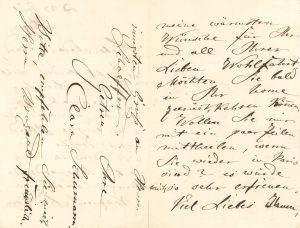 meine wärmsten
Wünsche für Ihr
und all Ihrer
Lieben Wohlfahrt
Möchten Sie bald
in Ihr home
zurückkehren können.
Wollen Sie mir
mit ein paar Zeilen
mittheilen, wenn
Sie wieder in
sind? es würde
mich so sehr erfreuen.
Viel Liebes
innigsten Gruß an Ihren
Ihre
Clara Schumann.
Bitte, empfehlen Sie mich
Herrn freundlich.